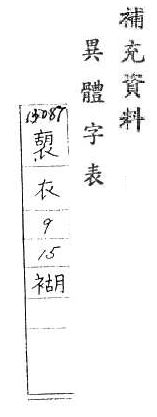 補充資料
異體字表
13087
衣
9
15